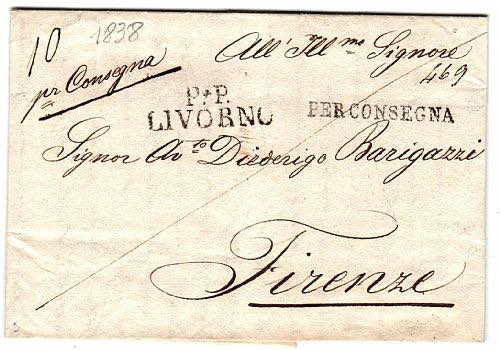 10
1838
pr Consegna
All' Ill.mo Signore
469
P.P.
LIVORNO
PER CONSEGNA
Signor Av.to Diederigo Barigazzi
Firenze